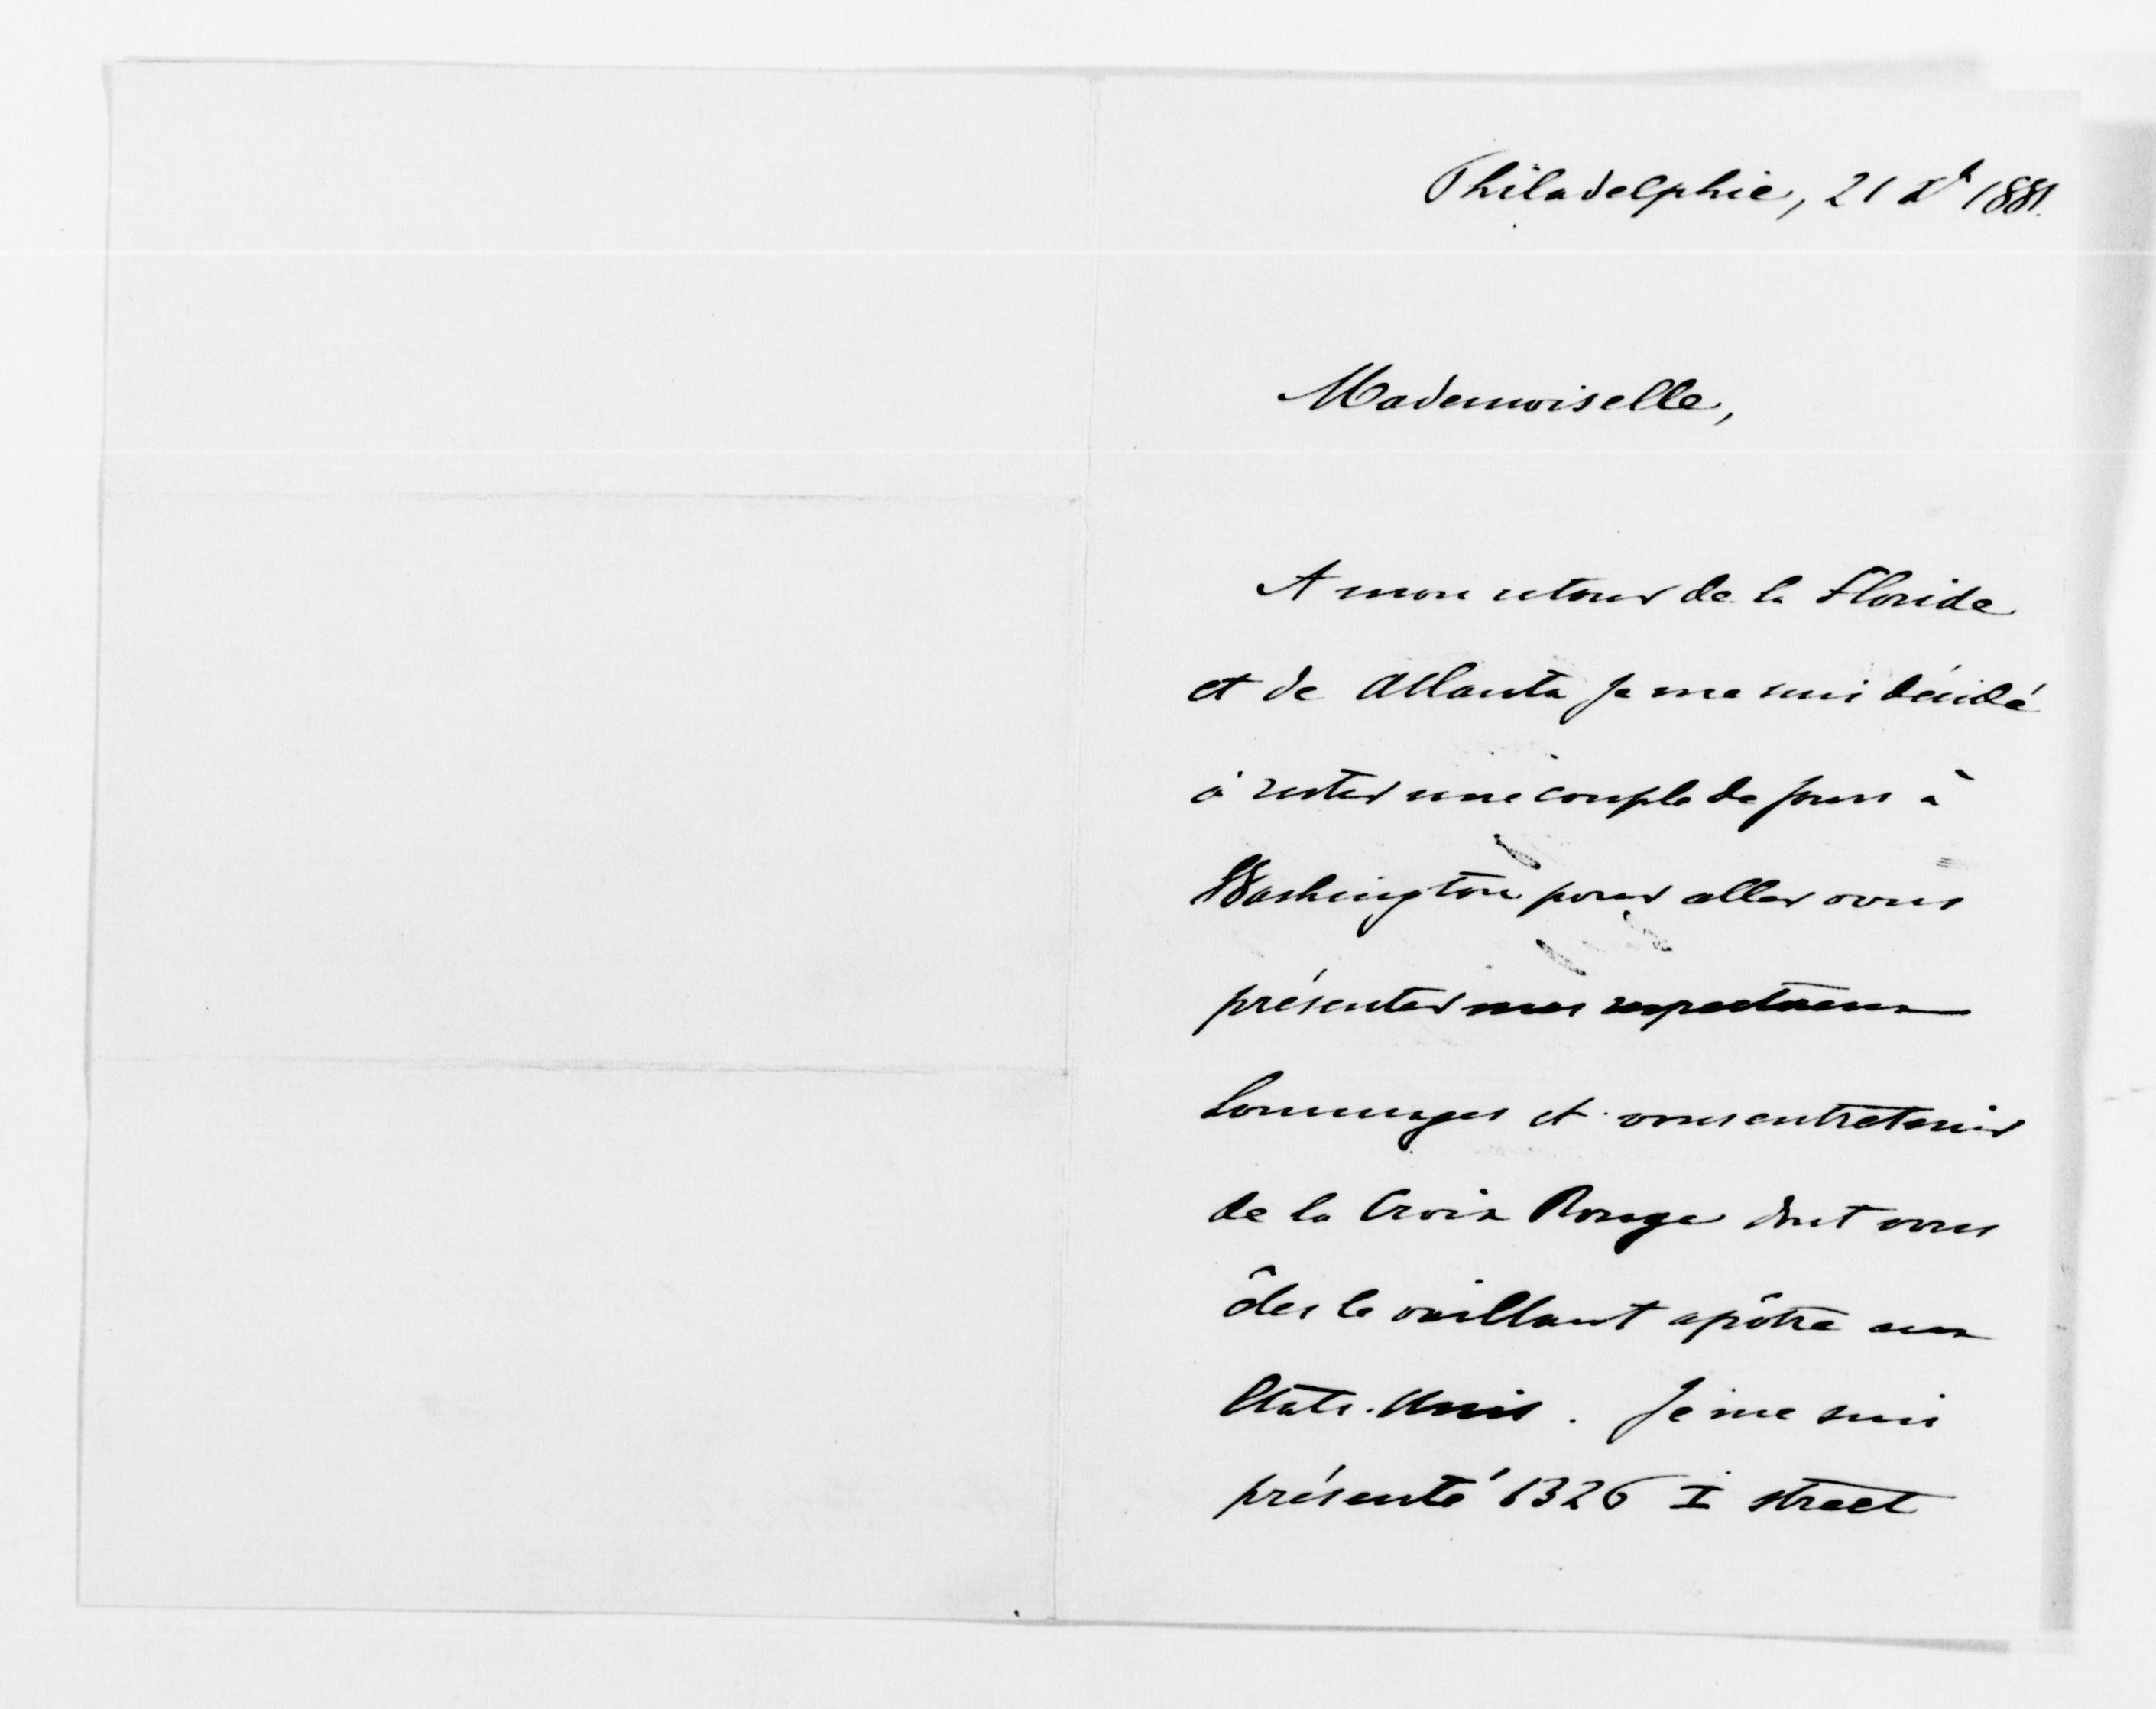 Philadelphie, 21 Xbr 1881.
Mademoiselle,
A mon retour de la Floride
et de Atlanta je me suis décidé
à rester une couple de jours à
Washington pour aller vous
présenter mes respectueux
hommages et vous entretenir
de la Croix Rouge dont vous
êtes le vaillant apôtre aux
Etats-Unis. Je me suis
présenté 1326 I street